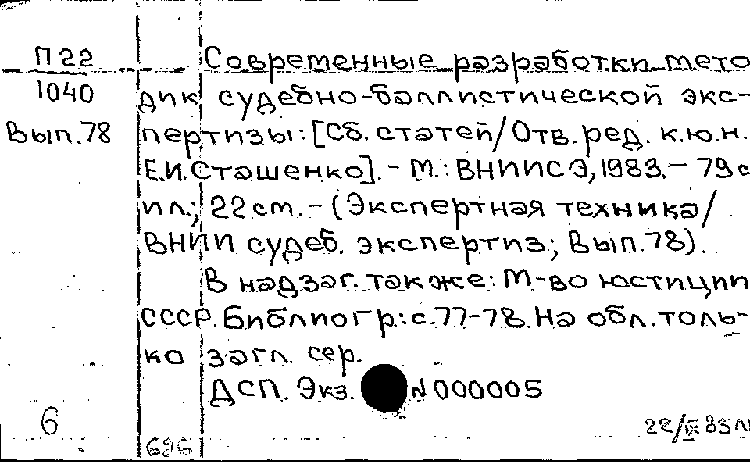 П22 Современные разработки мето
1040 дик судебно-баллистической экс-
Вып.78 пертизы: [Сб. статей/Отв. ред. к.ю.н.
Е.И.Сташенко]. - М.: ВНИИСЭ, 1983. - 79с
ил.; 22 см. - (Экспертная техника/
ВНИИ судеб. экспертиз; Вып. 78).
В надзаг. также: М-во юстиции
СССР. Библиогр.: с.77-78. На обл. толь-
ко загл. сер.
ДСП. Экз. N 000005
6
696